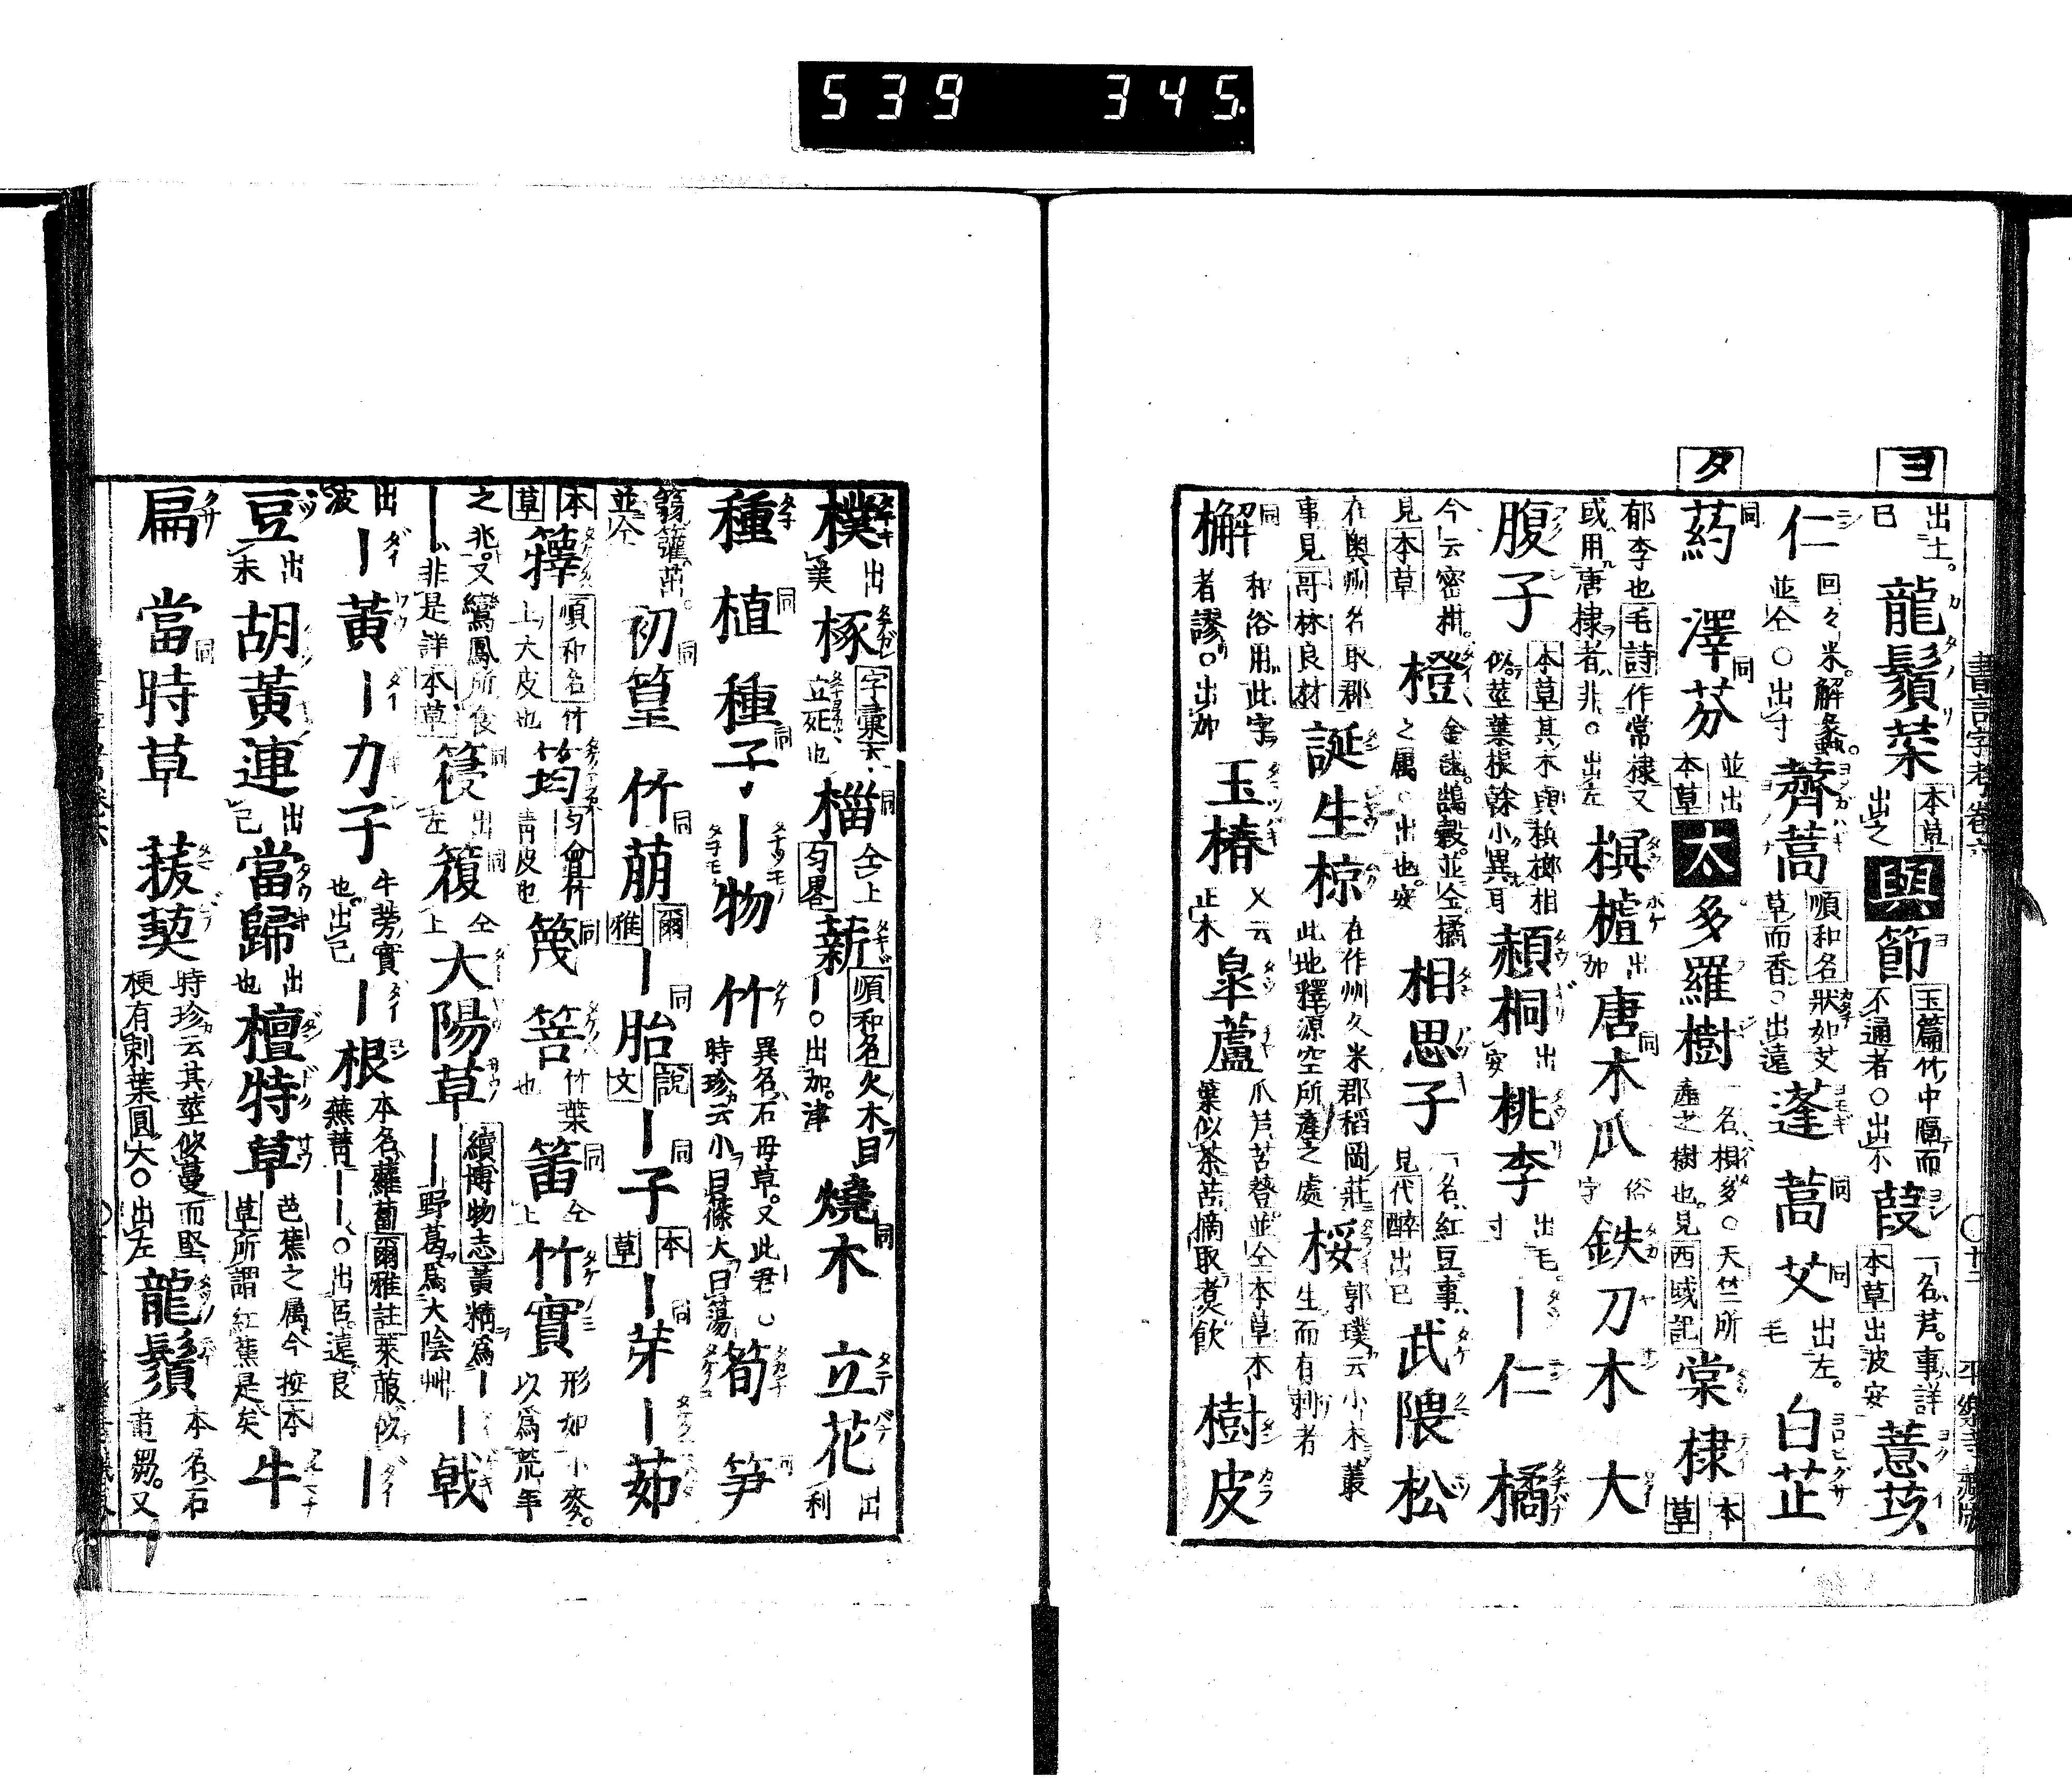 539 345
ヨ
タ
書言字考卷六 〇 廿二 平樂寺藏版
出土。巳 龍鬚菜 本草出之 與 節 玉篇竹中隔而不通者〇出不 葭 一名芦。事詳本草出波安 薏苡
仁 回々米。解蠡。並仝〇出寸 薺蒿 順和名狀如艾草而香〇出遠 蓬 蒿 同 艾 同 出左。毛 白芷
葯 同 澤芬 同 並出本草 太 多羅樹 一名根多。〇天竺所產之樹也。見西域記 棠棣 本草
郁李也毛詩作常棣又或用唐棣者非。〇出左 榠樝 出加 唐木瓜 同 俗字 鉄刀木 大
腹子 本草其木與檳榔相似莖葉根幹小異耳 赬桐 出安 桃李 出毛。寸 ー仁 橘
今云密柑。見本草 橙 金毬。鵠殼。並仝橘之属〇出也。安 相思子 一名紅豆。事見代醉出巳 武隈松
在奥州名取郡事見哥林良材 誕生椋 在作州久米郡稻岡莊此地釋源空所產之處 桵 郭璞云小木叢生而有刺者
檞 同 和俗用此字者謬。〇出加 玉椿 又云正木 皐蘆 爪芦苦䔲並仝本草木葉似茶苦摘取煮飲 樹皮
樸 出美 椓 字彙木立死也 椔 同 仝上匀畧 薪 順和名火木目ー。〇出加。津 燒木 同 立花 出利
種 植 同 種子 同 ー物 竹 異名石母草。又此君。〇時珍云小曰篠大曰蕩 筍 笋 同
篛籠茁。並仝 初篁 同 竹萠 同 爾雅 ー胎 同 說文 ー子 同 本草 ー芽 同 ー茹
本草 籜 順和名竹上大皮也 筠 匀會竹青皮也 篾 同 箬 竹葉也 箘 同 仝上 竹實 形如小麥。以爲荒年
之兆。又鸞鳳所食ー非是詳本草 出左 𥴩 同 仝上 大陽草 續博物志黃精爲ーー野葛爲大陰艸 ー戟
出波 ー黃 ー力子 牛蒡實也。出巳 ー根 本名蘿蔔爾雅註萊菔似蕪菁ーー〇出呂。遠。良 ー
豆 出未 胡黃連 出己 當歸 出也 檀特草 芭蕉之属今按本草所謂紅蕉是矣 牛
扁 當時草 同 菝葜 時珍云其莖似蔓而堅梗有刺葉圓大〇出左 龍鬚 本名石龍芻。又